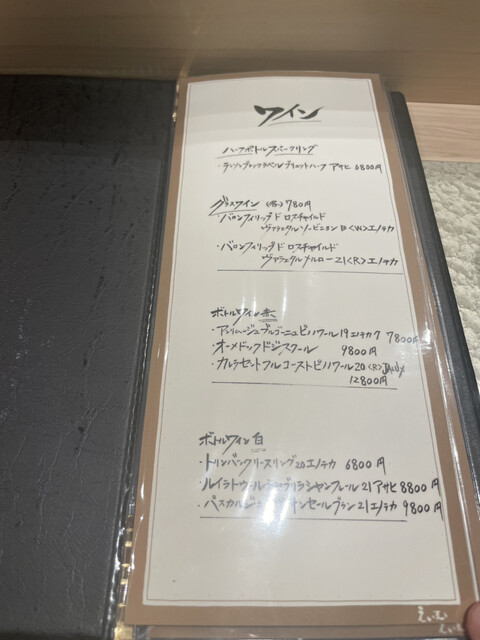 ワイン
ハーフボトルスパークリング
・ランソンブラックラベルブリュットハーフ アサヒ 6800円
グラスワイン (各)780円
・バロンフィリップド ロスチャイルド
ヴァラエタル ソービニヨン B <W>エノテカ
・バロンフィリップド ロスチャイルド
ヴァラエタルメルロー21<R>エノテカ
ボトルワイン 赤
ブルゴーニュピノノワール19エノテカ 7800
・オーメドックドジスクール 9800円
・カルラセットフルコーストピノノワール20<R>
12800円
ボトルワイン 白
・トリンバックリースリング20エノテカ 6800円
・ルイラトゥール 21アサヒ 8800円
・パスカルジョ サンセールブラン21エノテカ 9800円